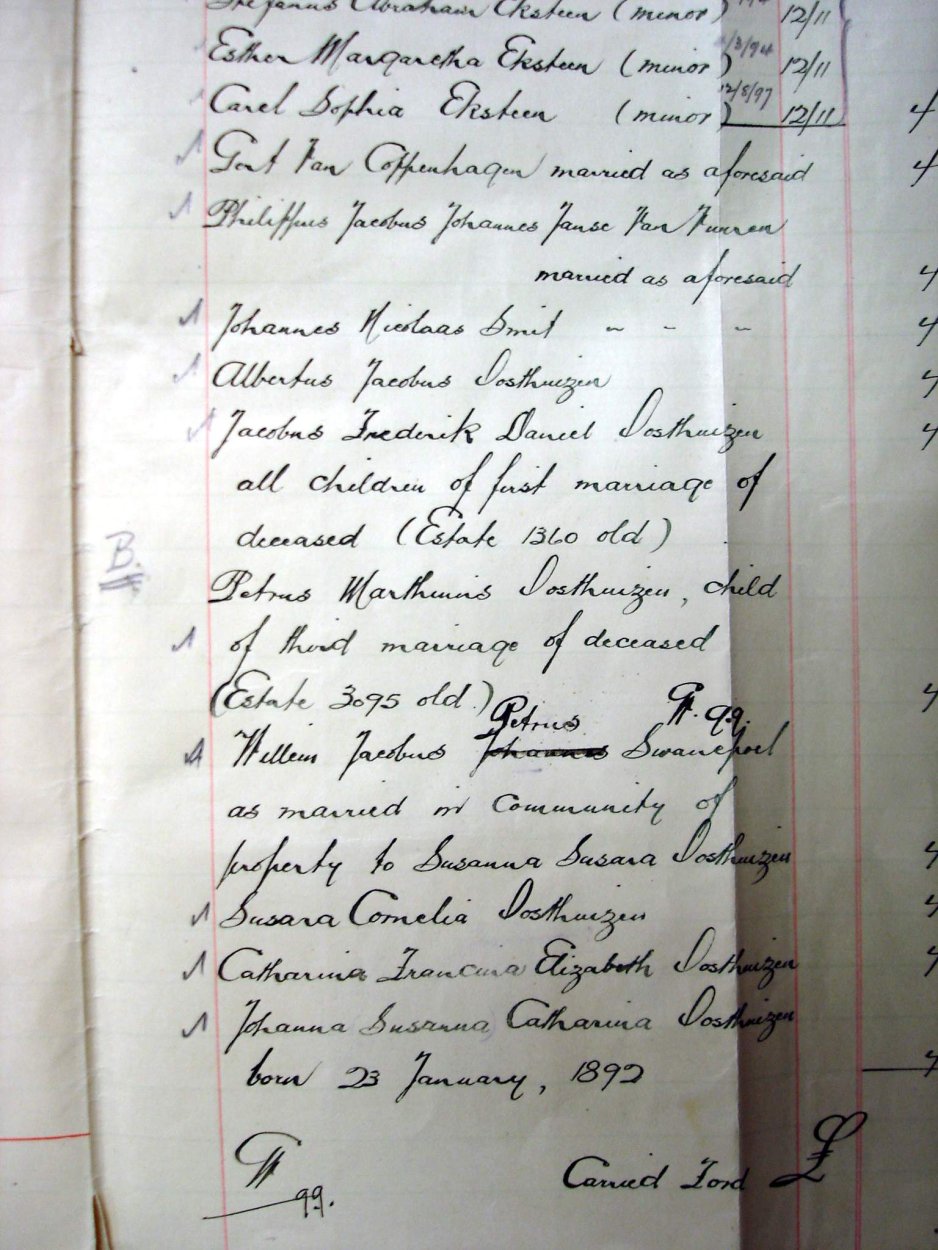 Stefanus Abraham Eksteen (minor) 12/11
Esther Margaretha Eksteen (minor) 12/11
Carel Sophia Eksteen (minor) 12/8/97 12/11 4
Gert Van Coppenhagen married as aforesaid 4
Philippus Jacobus Johannes Janse Van Vuuren
married as aforesaid 4
Johannes Nicolaas Smit " " " 4
Albertus Jacobus Oosthuizen 4
Jacobus Frederik Daniel Oosthuizen 4
all children of first marriage of
deceased (Estate 1360 old)
B.
Petrus Marthinus Oosthuizen, child
of third marriage of deceased
(Estate 3095 old.) 4
Petrus
Willem Jacobus Johannes Swanepoel
as married in Community of
property to Susanna Susara Oosthuizen 4
Susara Cornelia Oosthuizen 4
Catharina Francina Elizabeth Oosthuizen 4
Johanna Susanna Catharina Oosthuizen
born 23 January, 1892 4
Carried Ford £